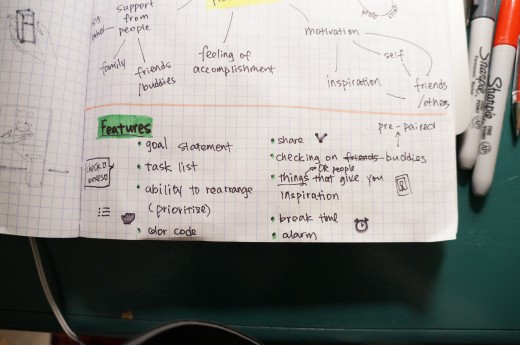 support
from
people
family
friends
/buddies
feeling of
accomplishment
motivation
self
inspiration
friends
/others
Features
goal statement
task list
ability to rearrange
(prioritize)
color code
share
pre-paired
checking on friends buddies
OR people
things that give you
inspiration
break time
alarm
Sharpie
Sharpie